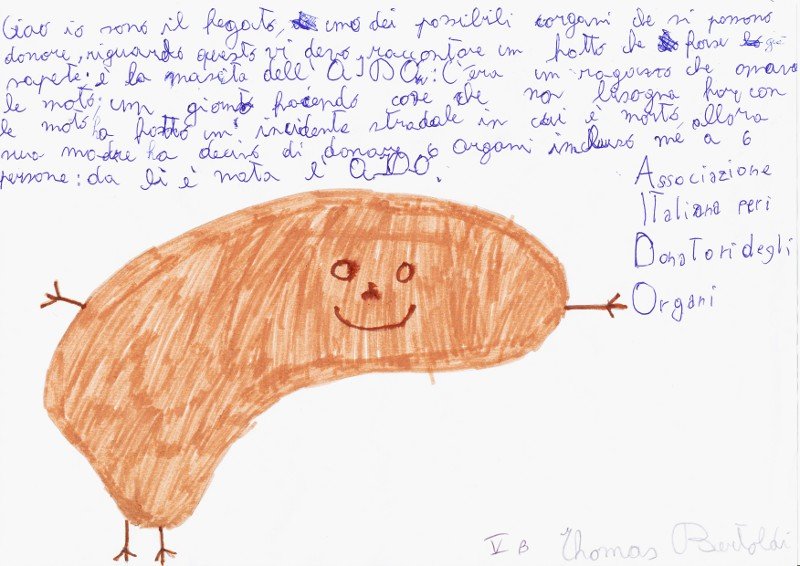 Ciao io sono il fegato, uno dei possibili organi che si possono
donare, riguardo questo vi devo raccontare un fatto che forse già
sapete: è la nascita dell'AIDO. C'era un ragazzo che amava
le moto; un giorno facendo cose che non bisogna far con
le moto ha fatto un' incidente stradale in cui è morto, allora
sua madre ha deciso di donare 6 organi incluso me a 6
persone: da lì è nata l'AIDO.
Associazione
Italiana per i
Donatori degli
Organi
V B Thomas Bertoldi